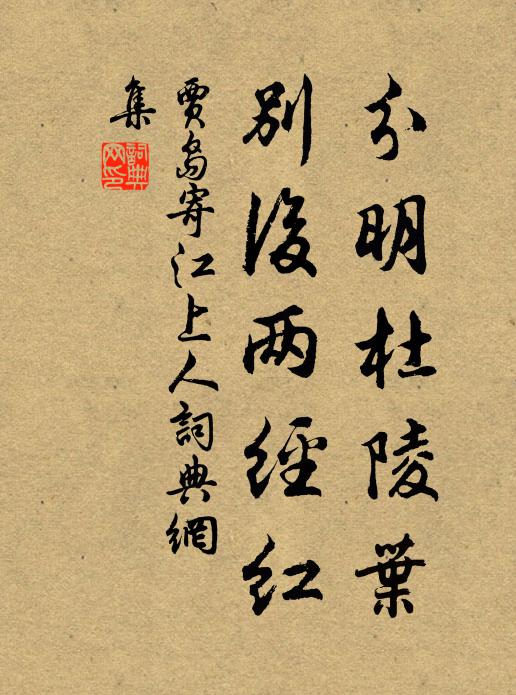 分明杜陵葉
別後两經紅
賈島寄江上人詞典網
集
詞典網印